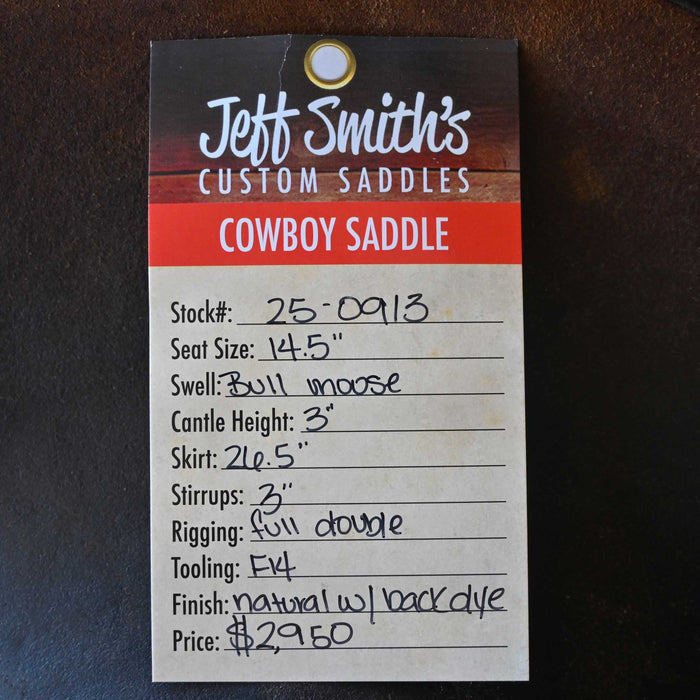 Jeff Smith's
CUSTOM SADDLES
COWBOY SADDLE
Stock#: 25-0913
Seat Size: 14.5"
Swell: Bull moose
Cantle Height: 3"
Skirt: 26.5"
Stirrups: 3"
Rigging: full double
Tooling: F14
Finish: natural w/ back dye
Price: $2,950